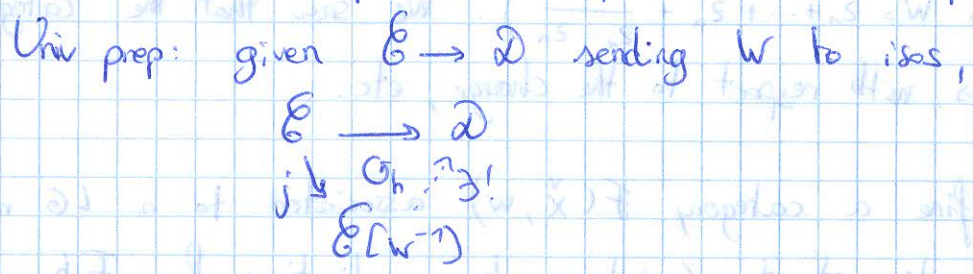 Univ prop: given ℰ → 𝒟 sending W to isos,
ℰ → 𝒟
j ↘ ↻ ∃!
ℰ[W⁻¹]